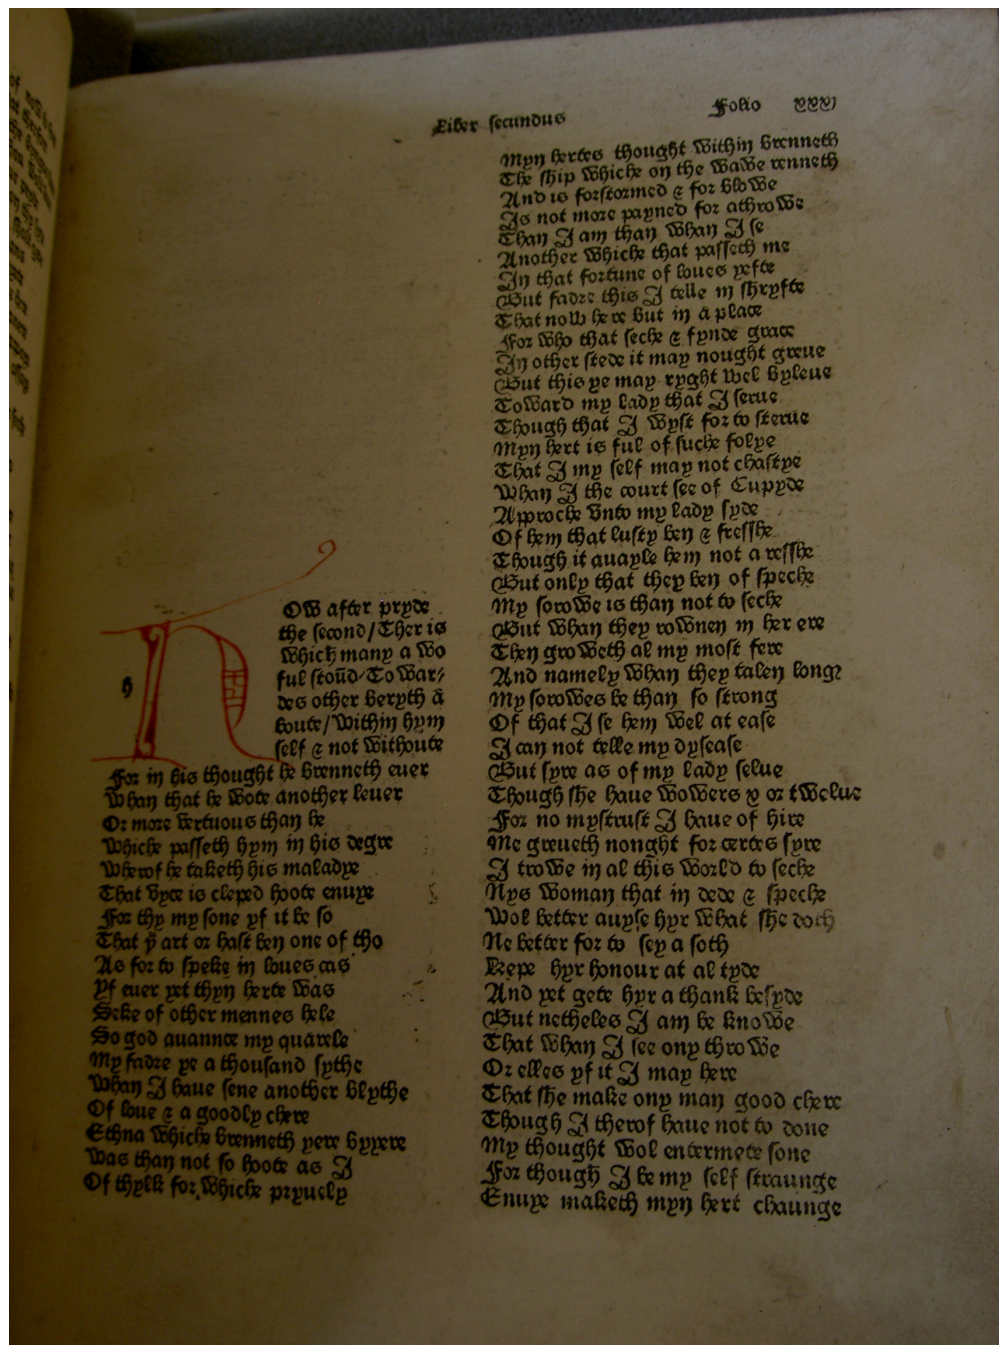 Liber secundus Folio xxxj
OW after pryde
the second/Ther is
which many a wo
ful stoūd/Towar/
des other beryth ā
boute/within hym
self & not withoute
h
For in his thought he brenneth euer
Whan that he wote another leuer
Or more vertuous than he
Whiche passeth hym in his degre
Wherof he taketh his maladye
That vyce is cleped hoote enuye
For thy my sone yf it be so
That þu art or hast ben one of tho
As for to speke in loues cas
Yf euer yet thyn herte was
Seke of other mennes hele
So god auannce my quarele
My fadre ye a thousand sythe
Whan I haue sene another blythe
Of loue & a goodly chere
Ethna whiche brenneth yere by yere
Was than not so hoote as I
Of thylk for whiche pryuely
Myn hertes thought within brenneth
The ship whiche on the wawe renneth
And is forstormed & for blowe
Is not more payned for a throwe
Than I am than whan I se
Another whiche that passeth me
In that fortune of loues yefte
But fadre this I telle in shryfte
That nowh here but in a place
For who that seche & fynde grace
In other stede it may nought greue
But this ye may ryght wel byleue
Toward my lady that I serue
Though that I wyst for to sterue
Myn hert is ful of suche folye
That I my self may not chastye
Whan I the court see of Cupyde
Approche vnto my lady syde
Of hem that lusty ben & fresshe
Though it auayle hem not a resshe
But only that they ben of speche
My sorowe is than not to seche
But whan they rownen in her ere
Then groweth al my most fere
And namely whan they talen longe
My sorowes be than so strong
Of that I se hem wel at ease
I can not telle my dysease
But syre as of my lady selue
Though she haue wowers x or twelue
For no mystrust I haue of hire
Me greueth nonght for certes syre
I trowe in al this world to seche
Nys woman that in dede & speche
Wol better auyse hyr what she doth
Ne better for to sey a soth
Kepe hyr honour at al tyde
And yet gete hyr a thank besyde
But netheles I am be knowe
That whan I see ony throwe
Or elles yf it I may here
That she make ony man good chere
Though I therof haue not to done
My thought wol entermete sone
For though I be my self straunge
Enuye maketh myn hert chaunge